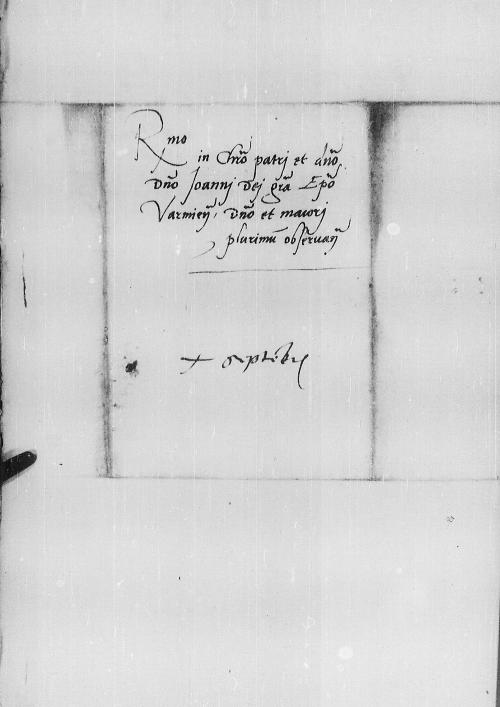 Rmo
in Chro patri et dno,
Dno Joannj Dej gra Epo
Varmien, Dno et maiori
plurimu obseruan
x septebr